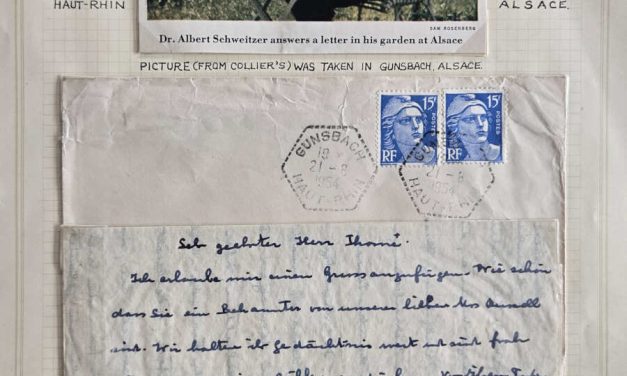 HAUT-RHIN
ALSACE.
SAM ROSENBERG
Dr. Albert Schweitzer answers a letter in his garden at Alsace
PICTURE (FROM COLLIER'S) WAS TAKEN IN GUNSBACH, ALSACE.
15F
POSTES
RF
15F
POSTES
RF
GUNSBACH
18
21-8
1954
HAUT-RHIN
21-8
1954
HAUT-RHIN
Sehr geehrter Herr Thomé.
Ich erlaube mir einen Gruss anzufügen. Wie schön
dass Sie ein Bekannter von unserer lieben Mrs
sind. Wir halten ihr Gedächtnis wert und sind froh